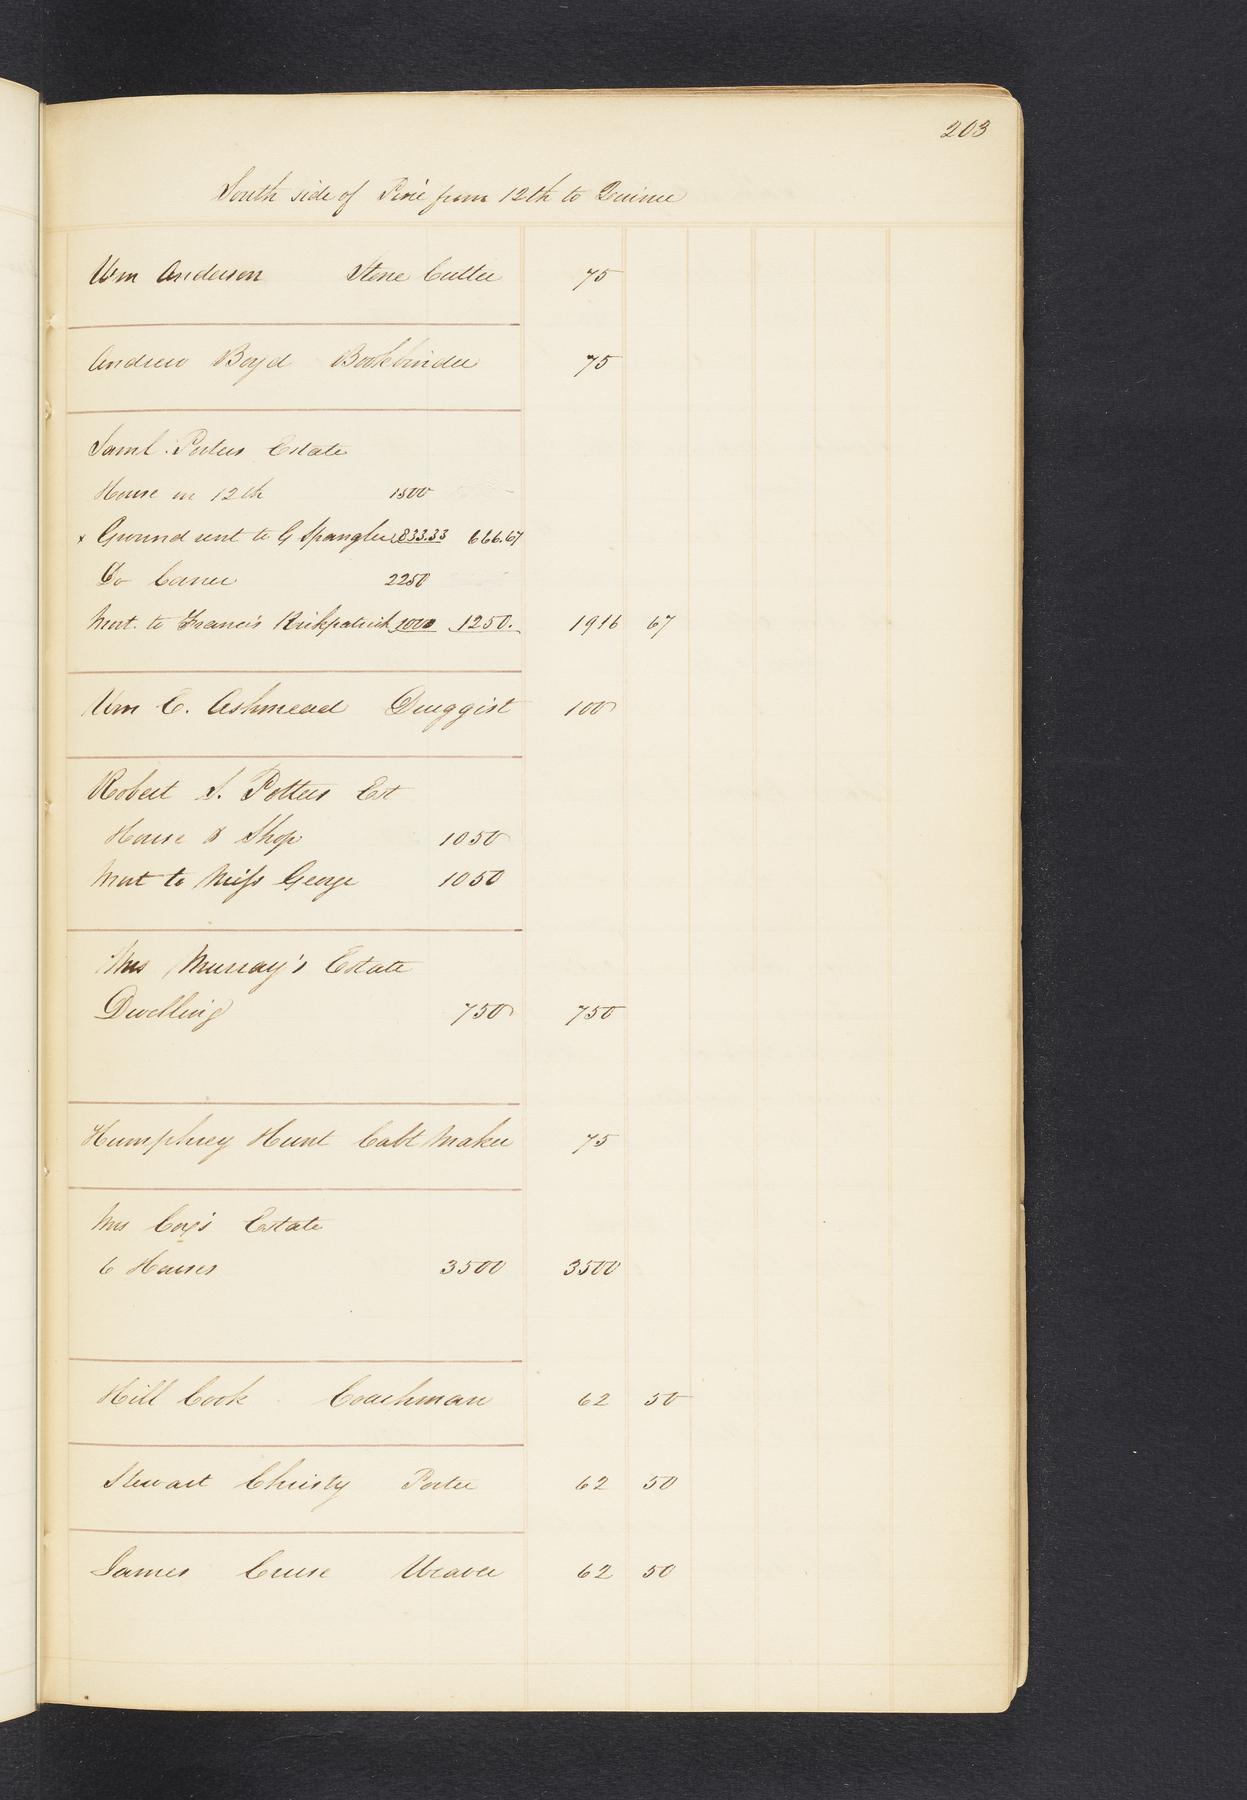 203
South side of Pine from 12th to Quince
Wm Anderson Stone Cutter 75
Andrew Boyd Bookbinder 75
Saml. Porters Estate
House in 12th 1500
x Ground rent to G Spangler 833.33 666.67
Do Corner 2250
Mort. to Francis Kirkpatrick 1000 1250. 1916 67
Wm C. Ashmead Druggist 100
Robert S. Potters Est
House & Shop 1050
Mort to Miss George 1050
Mrs Murray's Estate
Dwelling 750 750
Humphrey Hunt Cabt Maker 75
Mrs Cox's Estate
6 Houses 3500 3500
Hill Cook Coachman 62 50
Stewart Christy Porter 62 50
James Cruse Weaver 62 50